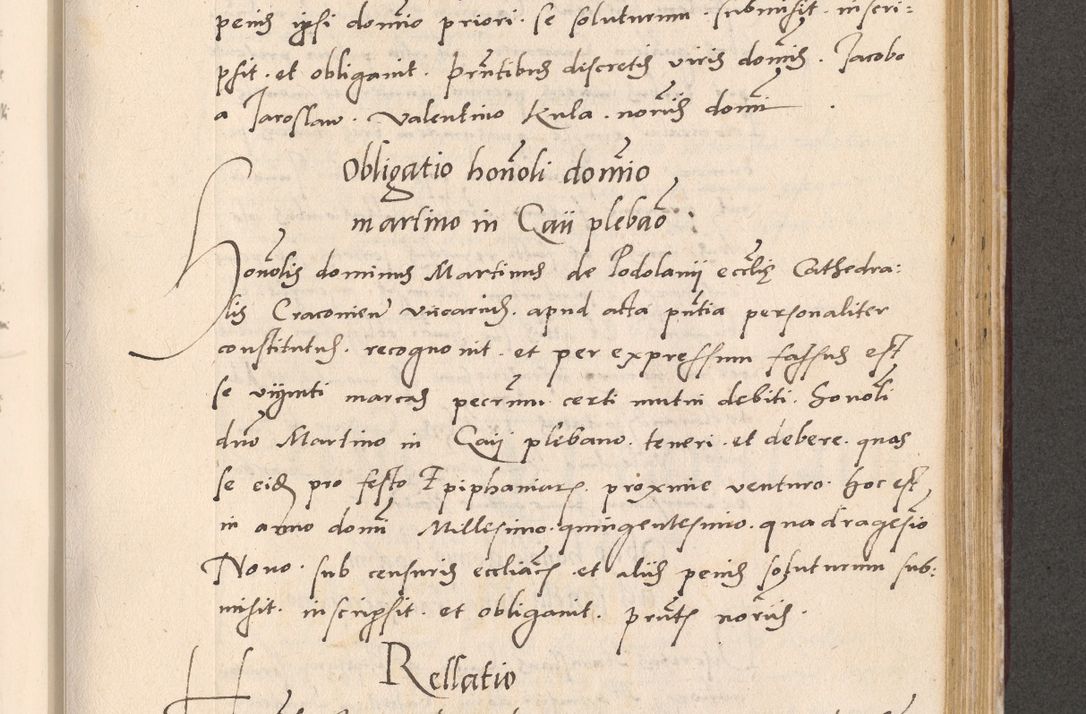 penis ipsi domino priori . se soluturum . submisit . inscri:
psit . et obligavit . Prntibus discretis viris dominis . Jacobo
a Jaroslaw . Valentino Kula . noriis domi .
Obligatio honoli domino
martino in Caii plebano :
Honolis dominus Martinus de Podolanij eccliae Cathedra:
lis Cracovien vicarius . apud acta pntia personaliter
constitutus . recognovit . et per expressum fassus est
se viginti marcas pecunm certi mutui debiti . honoli
dno Martino in Caij plebano . teneri . et debere . quas
se eidem pro festo Epiphaniarum . proxime venturo . hoc est
in anno domi Millesimo . quingentesimo . quadragesimo
Nono . sub censuris eccliacis . et aliis penis soluturum sub:
misit . inscripsit . et obligavit . prntes noriis .
Rellatio